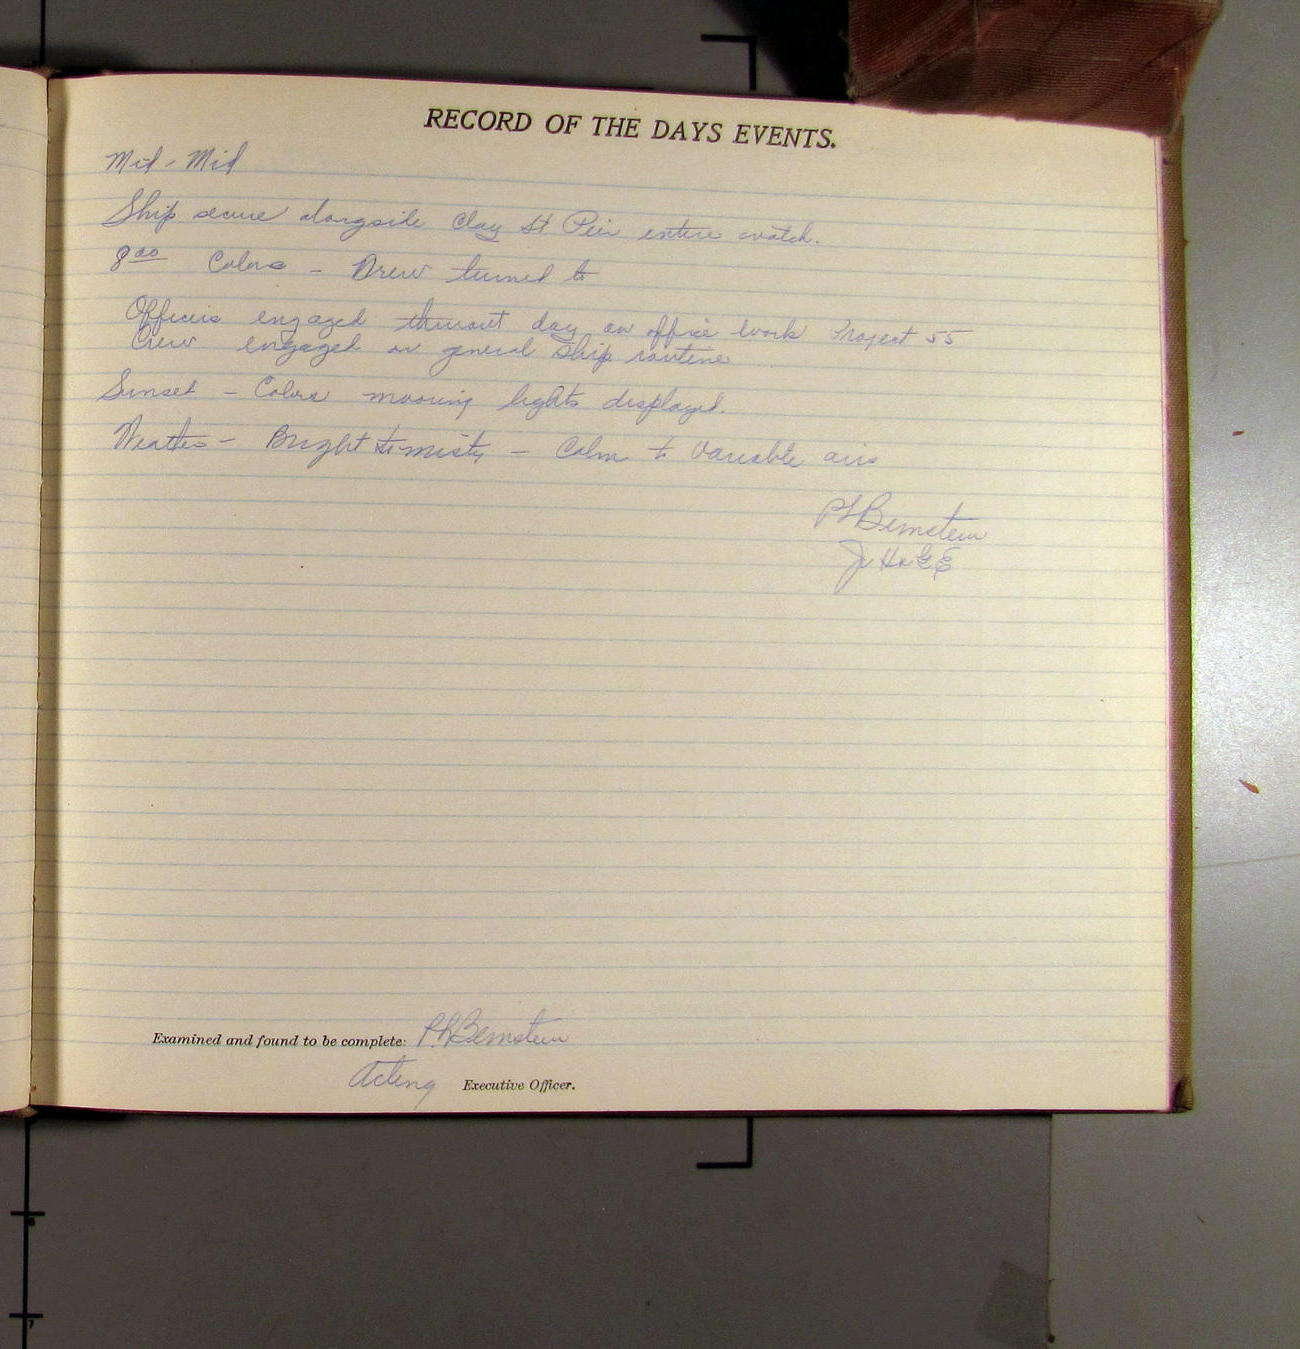 RECORD OF THE DAYS EVENTS.
Mid - Mid
Ship secure alongside Clay St Pier entire watch.
8⁰⁰ Colors - Crew turned to
Officers engaged thruout day on office work Project 55
Crew engaged on general ship routine
Sunset - Colors mooring lights displayed.
Weather - Bright to misty - Calm to variable airs
Bernstein
Jr H & G E
Examined and found to be complete: Bernstein
Acting Executive Officer.